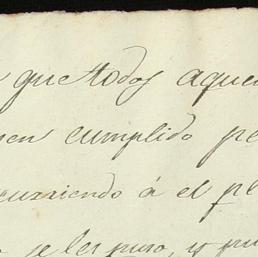 que todos aque
cumplido
curriendo á el
se les puso, y